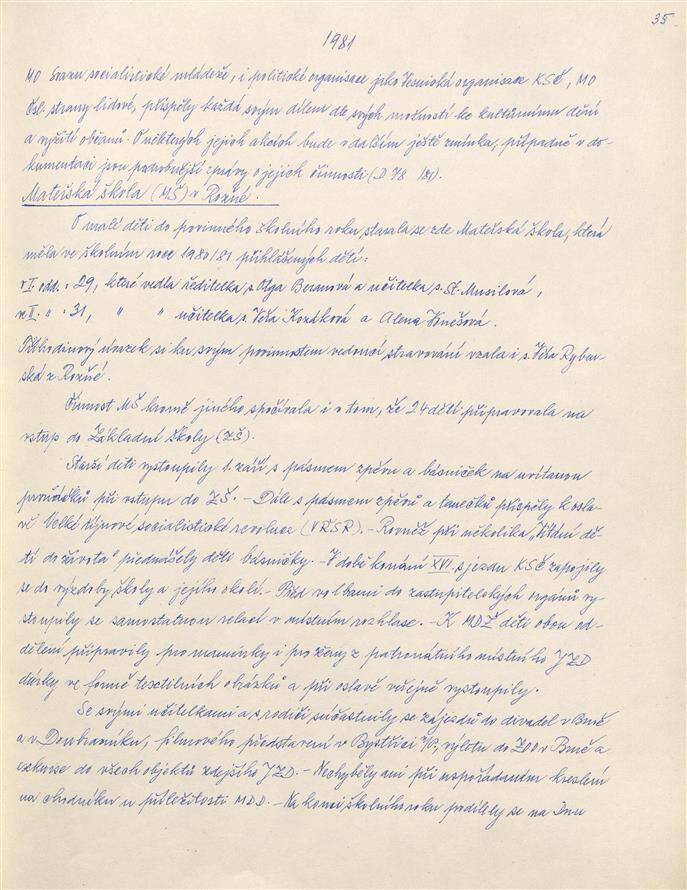 35
1981
MO Svazu socialistické mládeže, i politické organisace jako Vesnická organisace KSČ, MO
Čsl. strany lidové, přispěly každá svým dílem dle svých možností ke kulturnímu dění
a vyžití občanů. O některých jejich akcích bude v dalším ještě zmínka, případně v do-
kumentaci jsou podrobnější zprávy o jejich činnosti (D 78 /81).
Mateřská škola (MŠ) v Rožné.
O malé děti do povinného školního roku starala se zde Mateřská škola, která
měla ve školním roce 1980/81 přihlášených dětí:
v I. odd. : 29, které vedla ředitelka s. Olga Beranová a učitelka s. St. Musilová,
ve II. " : 31, " " učitelka s. Věra Kozáková a Alena
Půlhodinový úvazek si ku svým povinnostem vedoucí stravování vzala i s. Věra Ryben-
ská z Rožné.
Činnost MŠ kromě jiného spočívala i v tom, že 24 dětí připravovala na
vstup do Základní školy (ZŠ).
Starší děti vystoupily 1. září s pásmem zpěvu a básniček na uvítanou
prvňáčků při vstupu do ZŠ. – Dále s pásmem zpěvů a tanečků přispěly k osla-
vě Velké říjnové socialistické revoluce (VŘSR). – Rovněž při několika „Vítání dě-
tí do života" přednášely děti básničky. – V době konání XVI. sjezdu KSČ zapojily
se do výzdoby školy a jejího okolí. – Před volbami do zastupitelských orgánů vy-
stoupily se samostatnou relací v místním rozhlase. – K MDŽ děti obou od-
dělení připravily pro maminky i pro ženy z patronátního místního JZD
dárky ve formě textilních obrázků a při oslavě veřejně vystoupily.
Se svými učitelkami a s rodiči zúčastnily se zájezdů do divadel v Brně
a v Doubravníku, filmového představení v Bystřici n/P, výletu do ZOO v Brně a
exkurse do všech objektů zdejšího JZD. – Nechyběly ani při uspořádaném kreslení
na chodníku u příležitosti MDD. – Na konci školního roku podílely se na Dnu